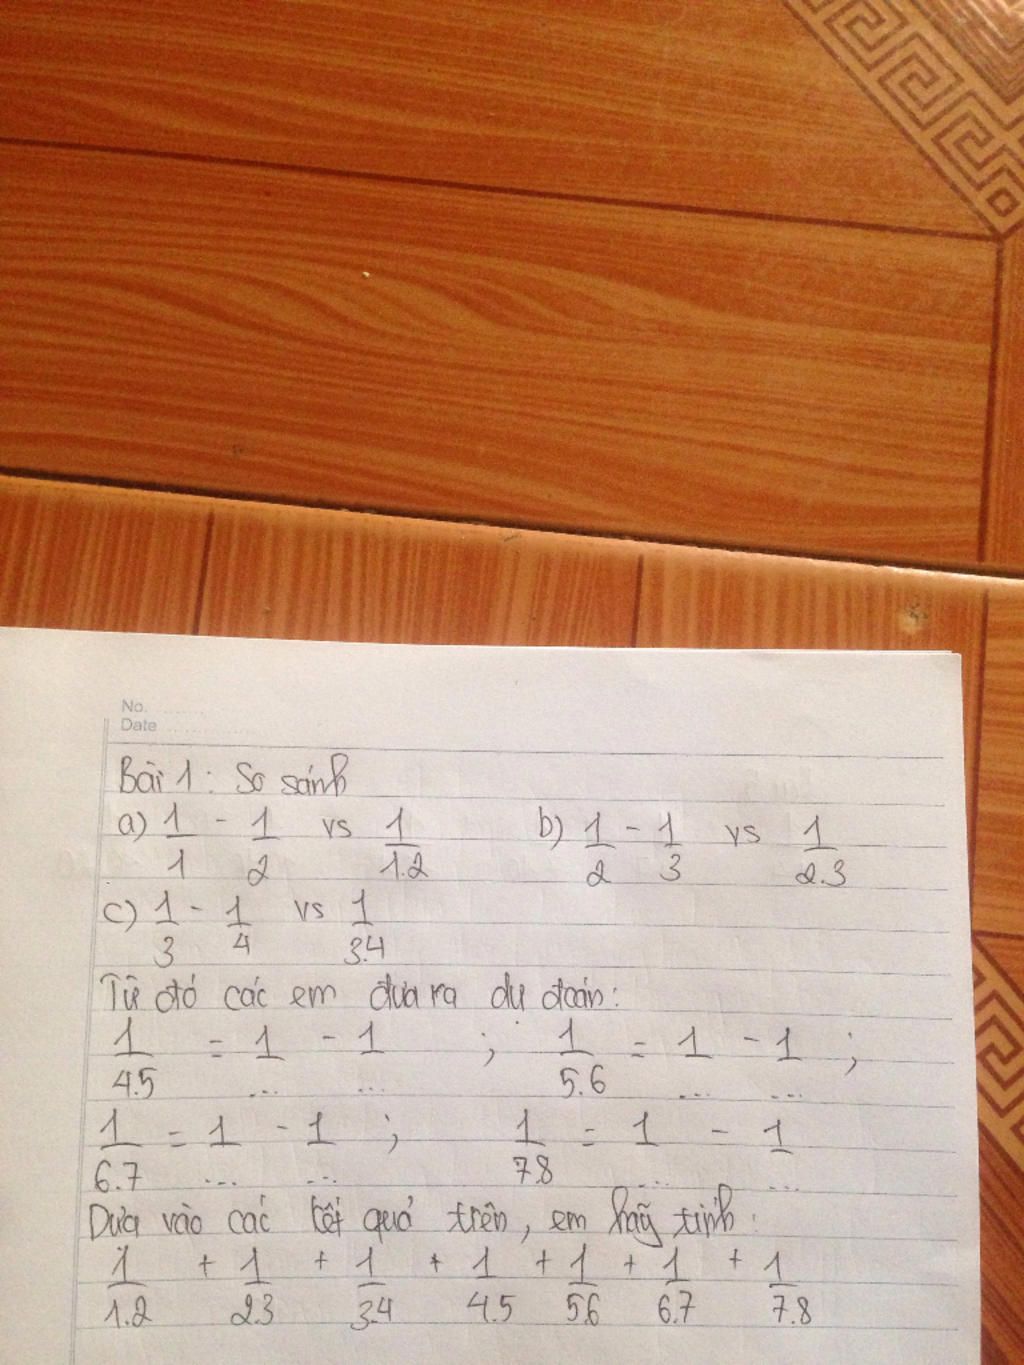 No. ........
Date ............
Bài 1: So sánh
a) 1/1 - 1/2 vs 1/1.2 b) 1/2 - 1/3 vs 1/2.3
c) 1/3 - 1/4 vs 1/3.4
Từ đó các em đưa ra dự đoán:
1/4.5 = 1/... - 1/... ; 1/5.6 = 1/... - 1/... ;
1/6.7 = 1/... - 1/... ; 1/7.8 = 1/... - 1/...
Dựa vào các kết quả trên, em hãy tính:
1/1.2 + 1/2.3 + 1/3.4 + 1/4.5 + 1/5.6 + 1/6.7 + 1/7.8